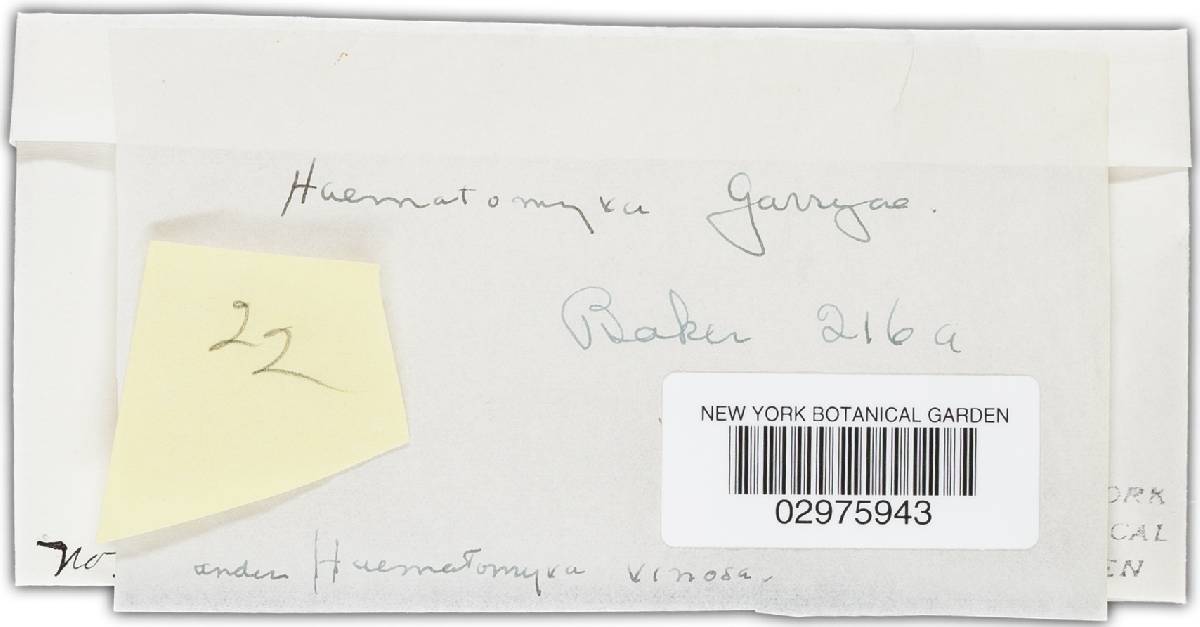 Haematomyxa Garryae.
22
Baker 216a
NEW YORK BOTANICAL GARDEN
02975943
ORK
CAL
EN
No.
under Haematomyxa vinosa.